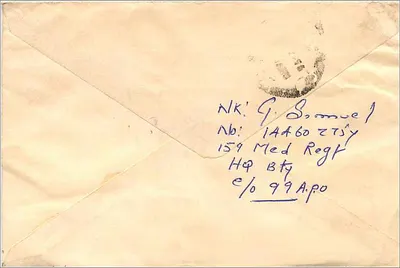 NK: G. Samuel
No:
159 Med Regt
HQ Bty
c/o 99 A.P.O